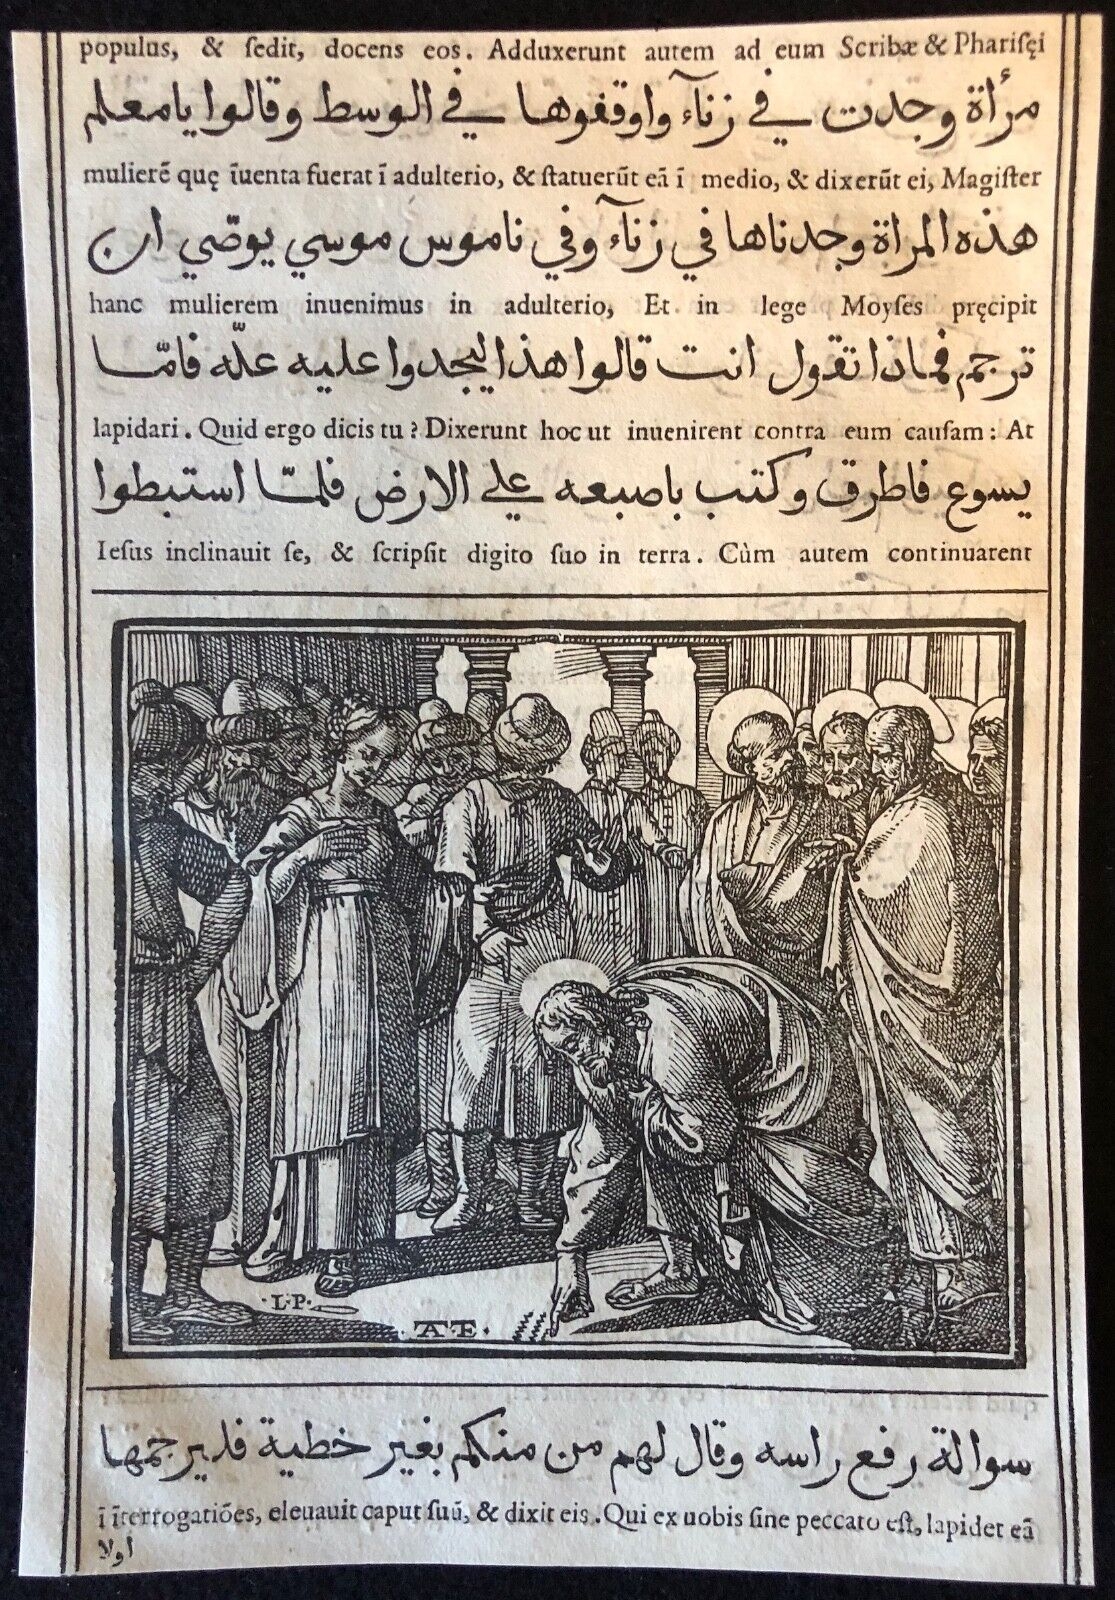 populus, & ſedit, docens eos. Adduxerunt autem ad eum Scribæ & Phariſęi
مرأة وجدت في زنآء واوقفوها في الوسط وقالوا يامعلم
mulierẽ quę ĩuenta fuerat ĩ adulterio, & ſtatuerũt eã ĩ medio, & dixerũt ei, Magiſter
هذه المرأة وجدناها في زنآء وفي ناموس موسي يوصّي ان
hanc mulierem inuenimus in adulterio, Et in lege Moyſes pręcipit
ترجم فماذا تقول انت قالوا هذا ليجدوا عليه علّه فامّا
lapidari. Quid ergo dicis tu? Dixerunt hoc ut inuenirent contra eum cauſam: At
يسوع فاطرق وكتب باصبعه علي الارض فلمّا استبطوا
Ieſus inclinauit ſe, & ſcripſit digito ſuo in terra. Cùm autem continuarent
·L·P·
·AT·
سوالة رفع راسه وقال لهم من منكم بغير خطية فليرجمها
ĩ ĩterrogatiões, eleuauit caput ſuũ, & dixit eis. Qui ex uobis ſine peccato eſt, lapidet eã
اولا